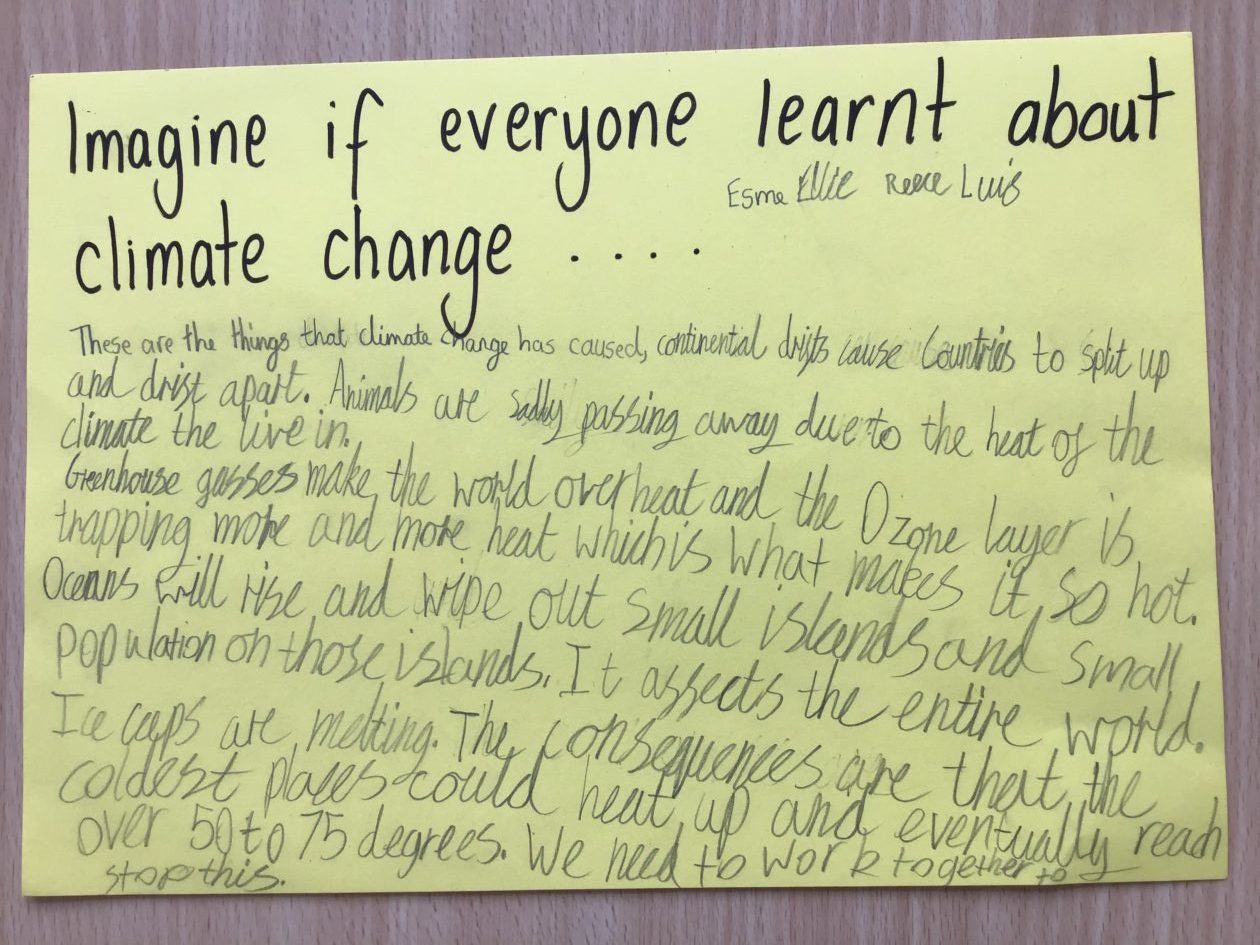 Imagine if everyone learnt about
Esme Ellie Reece Luis
climate change ....
These are the things that climate change has caused, continental drifts cause Countries to split up
and drift apart. Animals are sadly passing away due to the heat of the
climate the live in.
Greenhouse gasses make the world overheat and the Ozone layer is
trapping more and more heat which is what makes it so hot.
Oceans will rise and wipe out small islands and small
population on those islands. It affects the entire world.
Ice caps are melting. The consequences are that the
coldest places could heat up and eventually reach
over 50 to 75 degrees. We need to work together to
stop this.